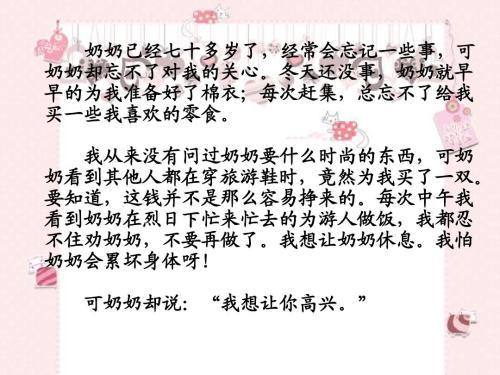 奶奶已经七十多岁了，经常会忘记一些事，可
奶奶却忘不了对我的关心。冬天还没事，奶奶就早
早的为我准备好了棉衣；每次赶集，忘忘不了给我
买一些我喜欢的零食。
我从来没有问过奶奶要什么时尚的东西，可奶
奶看到其他人都在穿旅游鞋时，竟然为我买了一双。
要知道，这钱并不是那么容易挣来的。每次中午我
看到奶奶在烈日下忙来忙去的为游人做饭，我都忍
不住劝奶奶，不要再做了。我想让奶奶休息。我怕
奶奶会累坏身体呀！
可奶奶却说：“我想让你高兴。”